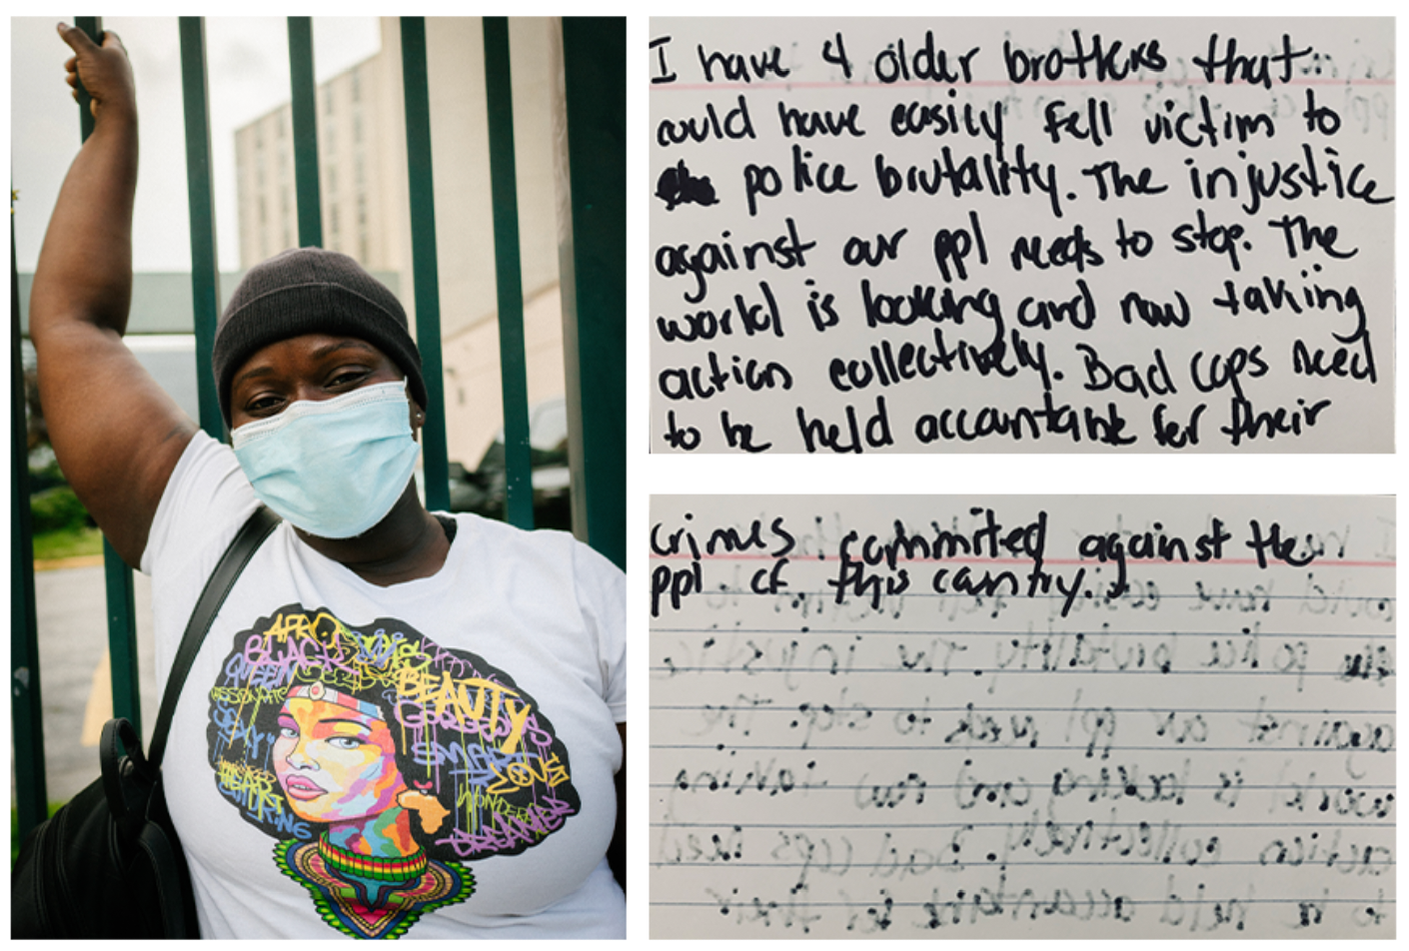 AFRO
BLACK
QUEEN
BEAUTY
GORGEOUS
SMART
LOVE
DREAMER
I have 4 older brothers that
could have easily fell victim to
police brutality. The injustice
against our ppl needs to stop. The
world is looking and now taking
action collectively. Bad cops need
to be held accountable for their
crimes committed against the
ppl of this country.